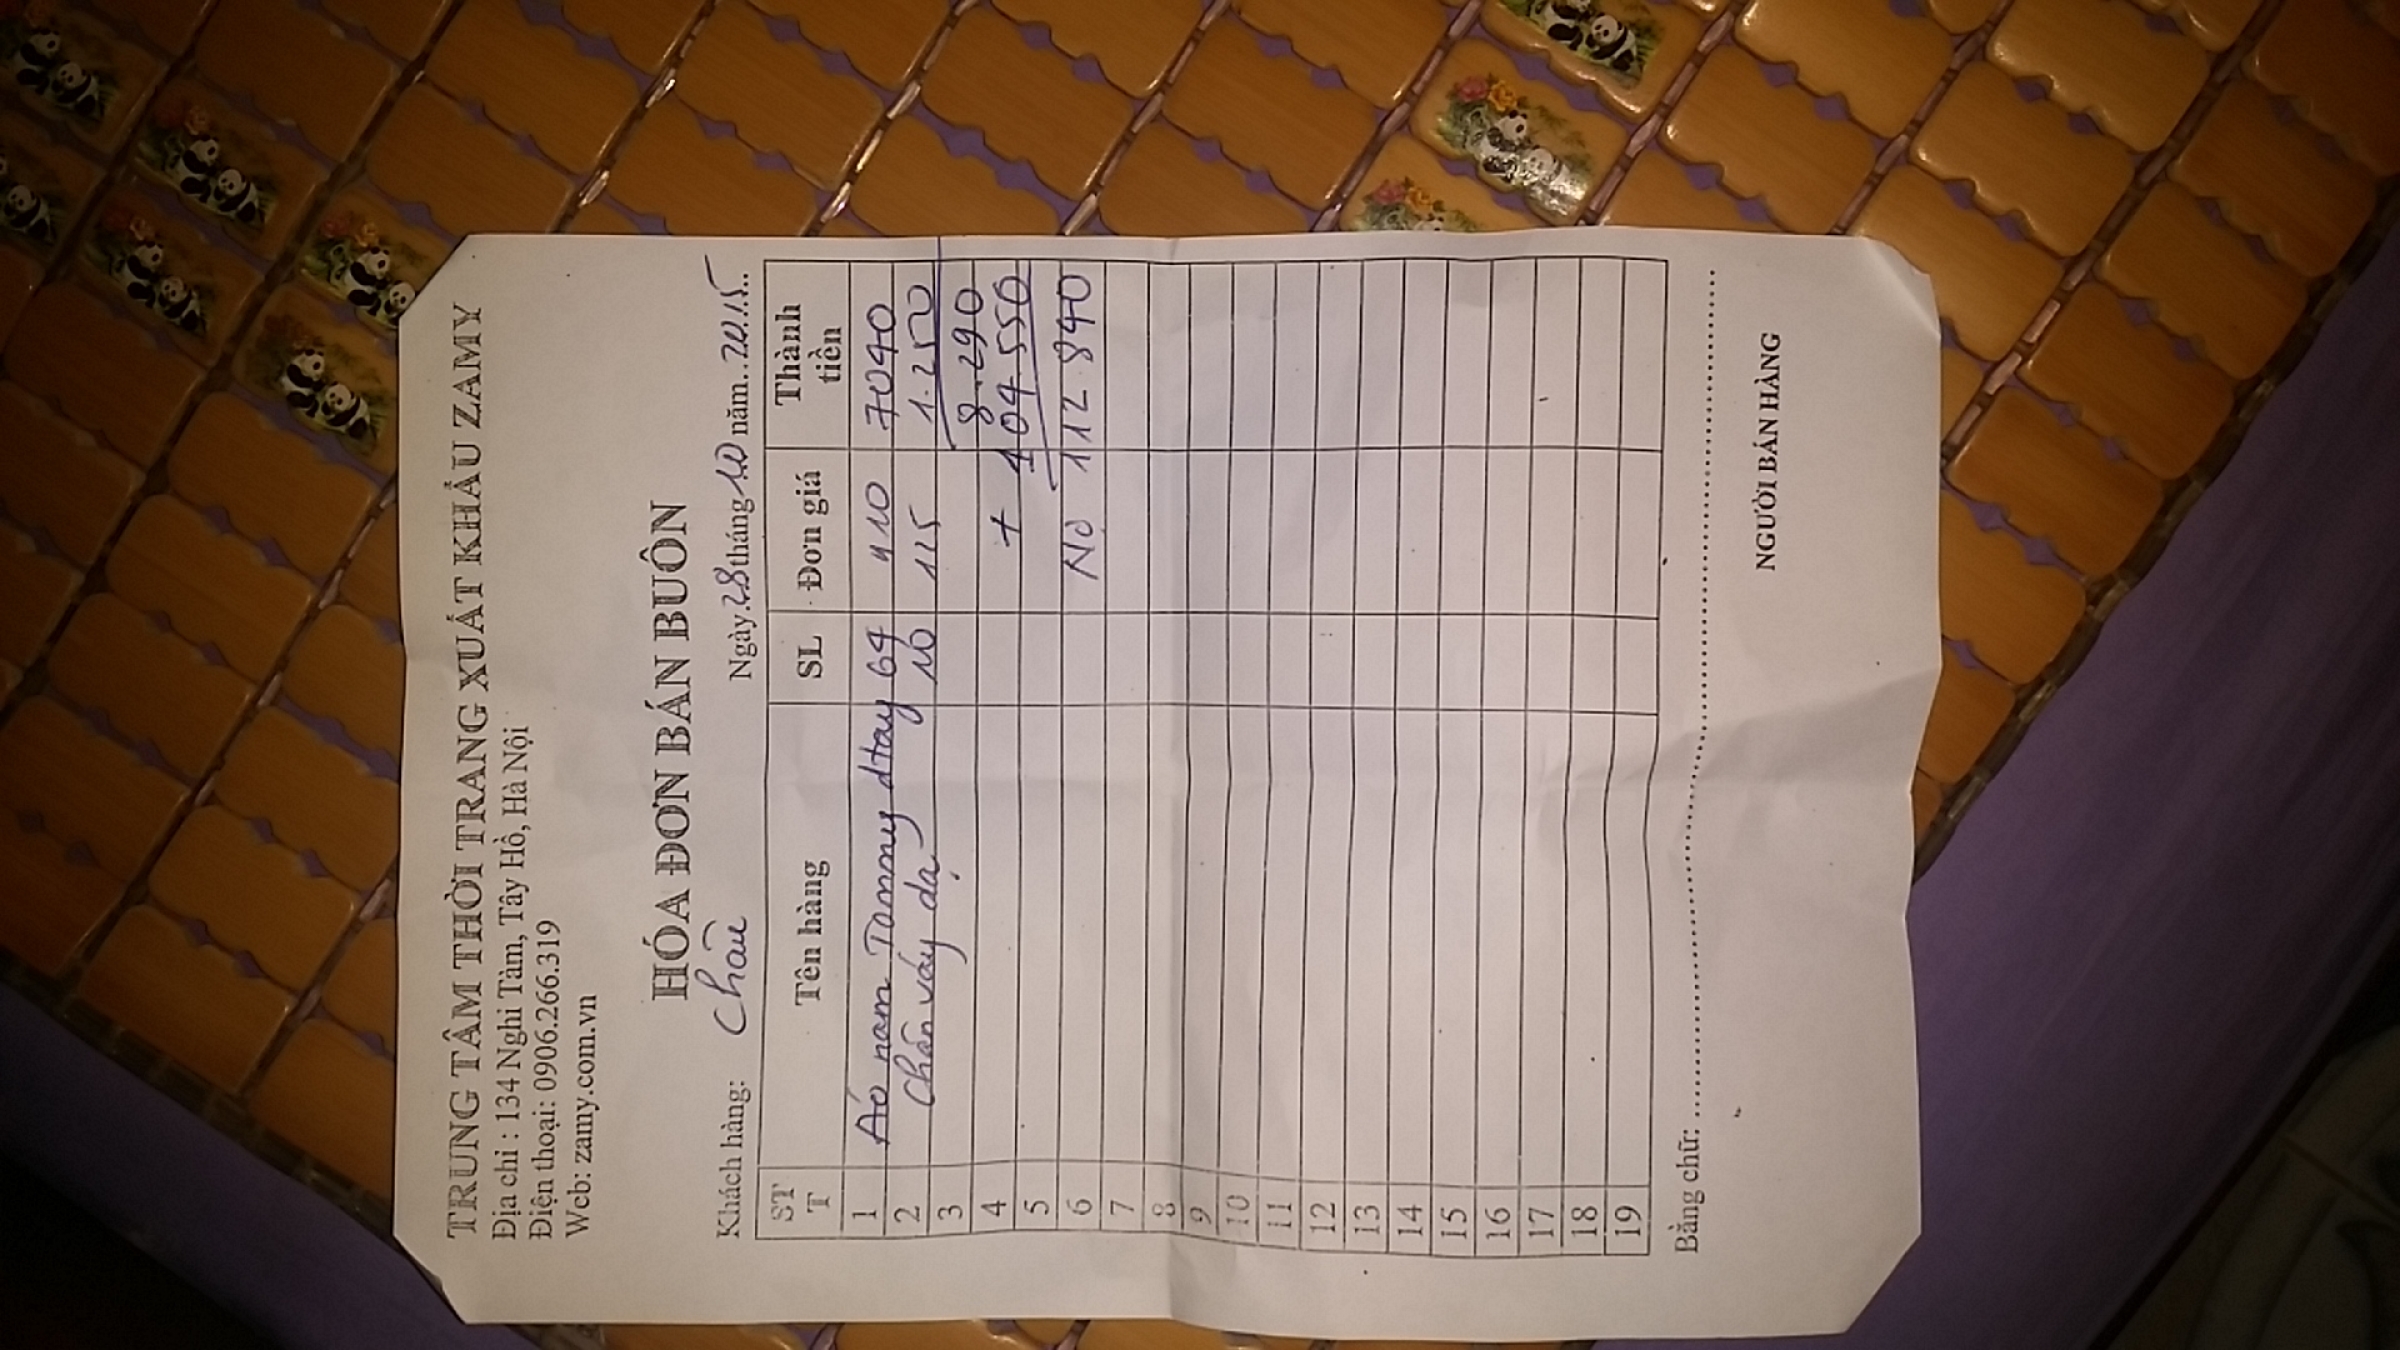 TRUNG TÂM THỜI TRANG XUẤT KHẨU ZAMY
Địa chỉ : 134 Nghi Tàm, Tây Hồ, Hà Nội
Điện thoại: 0906.266.319
Web: zamy.com.vn
HÓA ĐƠN BÁN BUÔN
Khách hàng: Ngày 28 tháng 10 năm 2015
STT Tên hàng SL Đơn giá Thành tiền
1 Áo nam Tommy dtay 64 110 7040
2 Chân váy dạ 10 125 1.250
3 8.290
4 + 104.550
5
6 Nợ 112.840
7
8
9
10
11
12
13
14
15
16
17
18
19
Bằng chữ:
NGƯỜI BÁN HÀNG